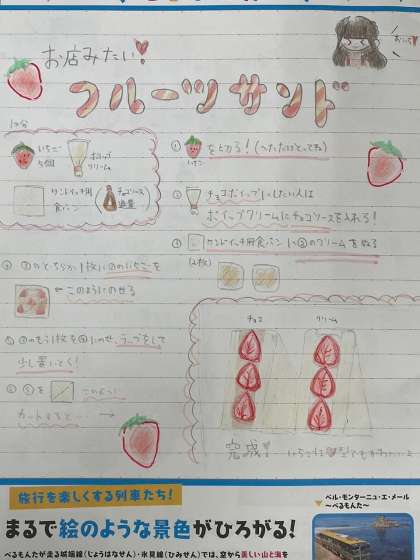 お店みたい!
フルーツサンド
1つ分
いちご
5個
ホイップ
クリーム
サンドイッチ用
食パン
チョコソース
適量
① をとる!(へただけとってね)
いちご
② チョコホイップにしたい人は
ホイップクリームにチョコソースを入れる!
③ サンドイッチ用食パンに②のクリームをぬる
(2枚)
④ ③のどちらか1枚に①のいちごを
このようにのせる
⑤ ③のもう1枚を④にのせ、ラップをして
少し置いとく!
⑥ ⑤を このように
カットすると…
チョコ
クリーム
完成!
旅行を楽しくする列車たち!
まるで絵のような景色がひろがる!
べるもんたが走る城端線(じょうはなせん)・氷見線(ひみせん)では、窓から美しい山と海を
ベル・モンターニュ・エ・メール
〜べるもんた〜